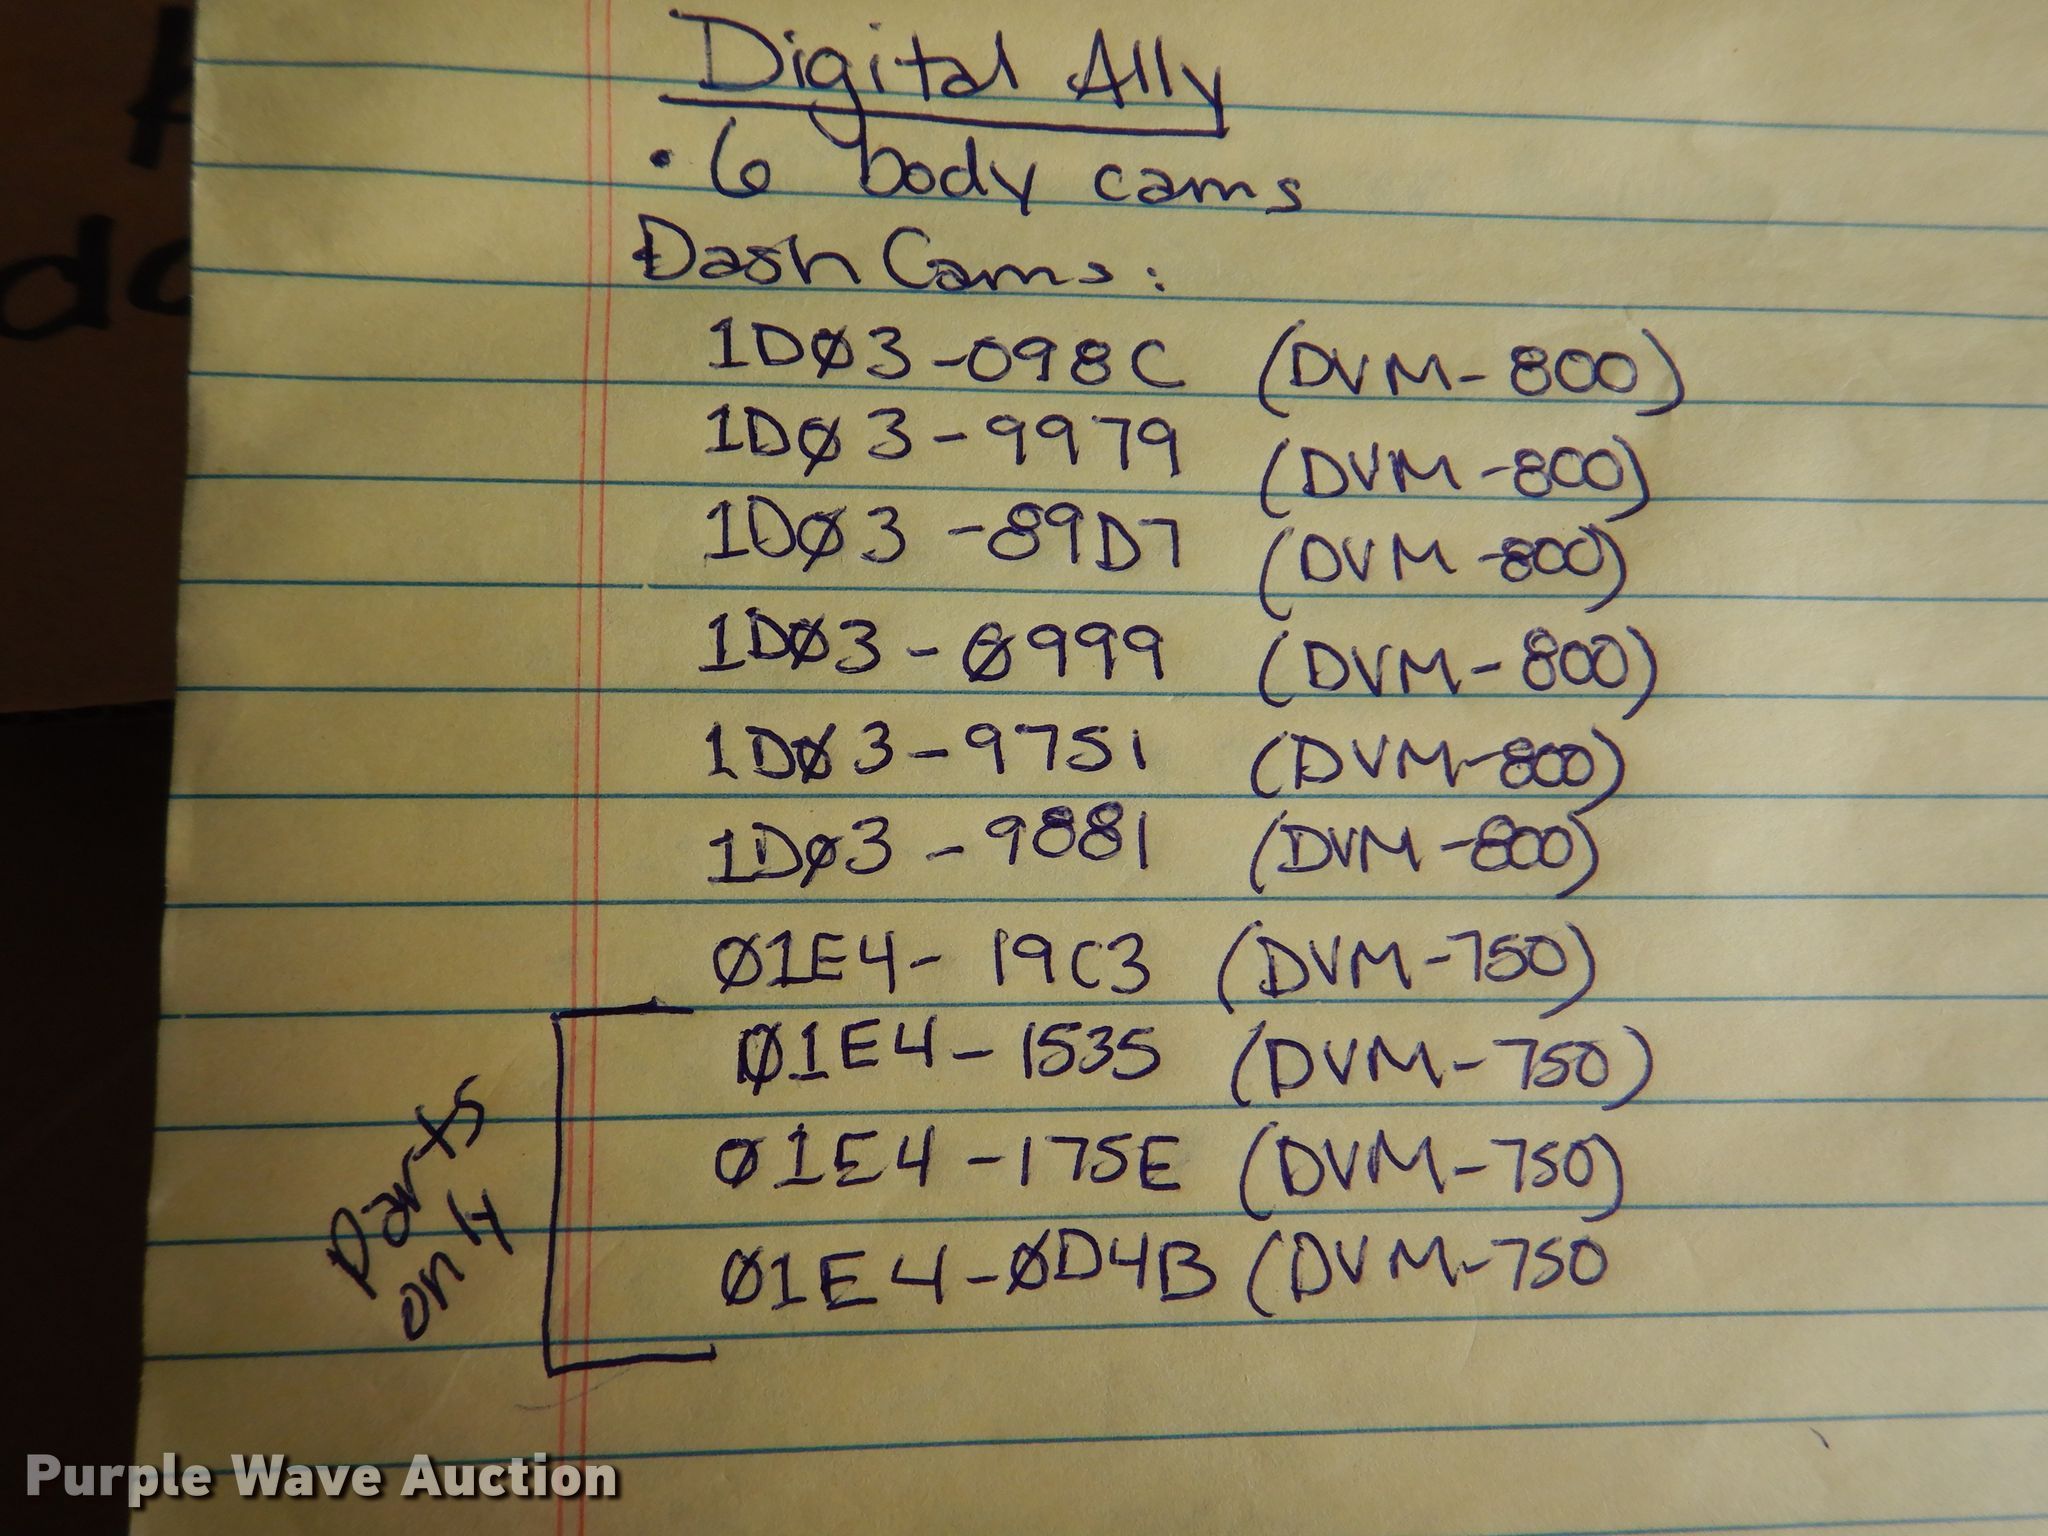 Digital Ally
• 6 body cams
Dash Cams:
1DØ3-098C (DVM-800)
1DØ3-9979 (DVM-800)
1DØ3-89D7 (DVM-800)
1DØ3-Ø999 (DVM-800)
1DØ3-9751 (DVM-800)
1DØ3-9881 (DVM-800)
Ø1E4-19C3 (DVM-750)
Ø1E4-1535 (DVM-750)
Ø1E4-175E (DVM-750)
Ø1E4-ØD4B (DVM-750
Parts
Purple Wave Auction